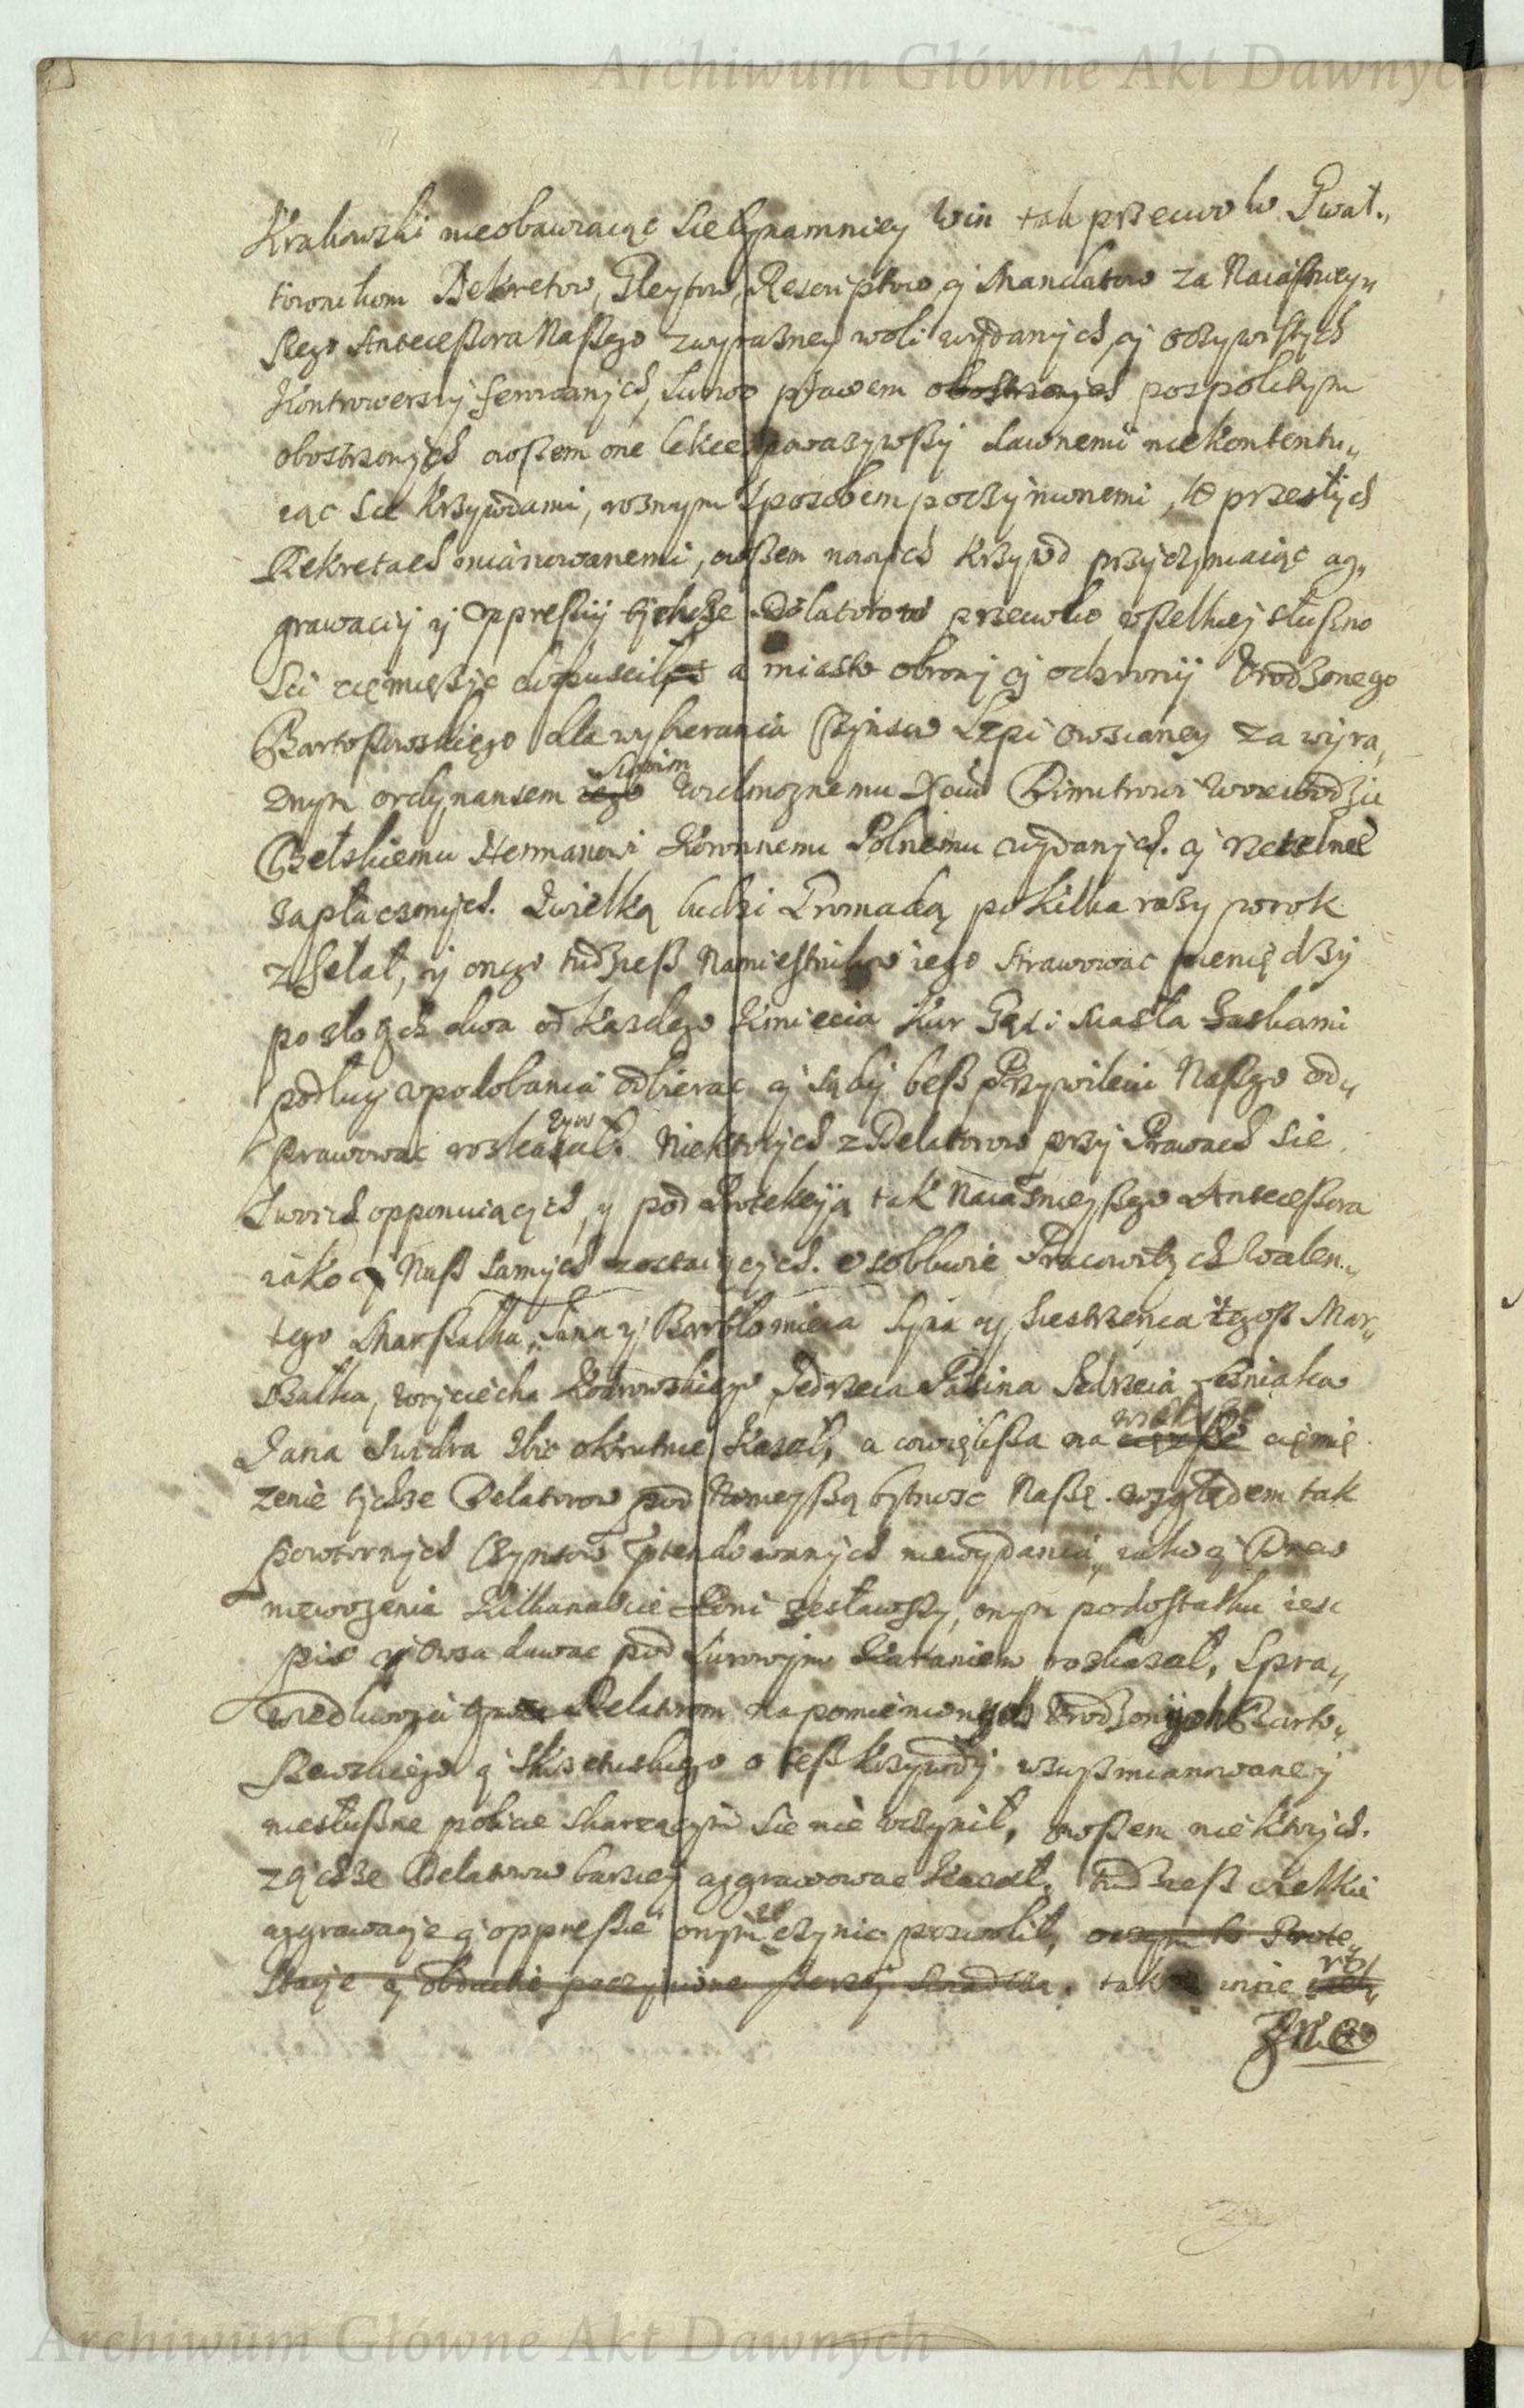 Archiwum Główne Akt Dawnych
Krakowski nieobawiaiąc się bynamniey win tak przeciwko Gwał„
townikom Dekretow, Gleytow, Rescriptow, y Mandatow za Naiasniey„
szego Antecessora Naszego zwyrazney woli wydanych, y oczywistych
Kontrowersiy ferowanych, surowo prawem obostrzonych pospolitym
obostrzonych owszem one lekce powazywszy dawnemi niekontentu„
iąc się krzywdami, roznym sposobem poczynionemi, w przeszłych
Dekretach mianowanemi, owszem nowych krzywd przyczyniaiąc ag„
grawaciy y oppressiy tychze Delatorow przeciwko wszelkiey słuszno
sci ciemięzyc dopuscił a miasto obrony y ochrony Urodzonego
Bartoszowskiego dla wybierania Czynszu Sepi owsianey za wyra„
znym ordynansem iego swoim Wielmoznemu Dimitrowi Woiewodzie
Bełskiemu Hetmanowi Koronnemu Polnemu wydanych. y rzetelnie
zapłaconych. Zwielką ludzi Gromadą po kilka razy porok
zsełał, y onego tudziesz Namiestnikow iego strawowac pieniędzy
po złotych dwa od kazdego Kmiecia Kur Gęsi Masła Faskami
podług upodobania odbierac y sądy besz Przywileiu Naszego od„
prawowac roskazał. Niektorych z Delatorow przy Prawach się
swoich opponuiących, y pod Protekcyą tak Naiasnieyszego Antecessora
iako y Nasz samych zostaiących. osobliwie Pracowitych Walen„
tego Marszałka, Jana y Bartłomieia Syna y siestrzenca tegosz Mar„
szałka, Woyciecha Jędrzeia Jędrzeia
Jana Swidra zbic okrutnie kazał, a cowiększa na wieksze ciemię
zenie tychze Delatorow pod Ninieyszą bytnosc Naszę. względem tak
powtornych Czynszow niewydania, iako y Drew
niewozenia Kilkanascie Koni zesławszy, onym podostatku iesc
pic y Owsa dawac pod surowym Karaniem roskazał, Spra„
wiedliwosci Delatorom na pomienionych Urodzonych Barto„
szewskiego y Skrzetuskiego o tesz krzywdy wzysz mianowaney
niesłuszne pobicie skarzącym się nie uczynił, owszem niektorych.
z tychze Delatorow barziey aggrawowac kazał, tudziesz wielkie
aggrawacye y oppressie onym czynic pozwolił, oczym to Prote„
stacye y obdukcie poczynione szerzey swiadczą. tak
Archiwum Główne Akt Dawnych